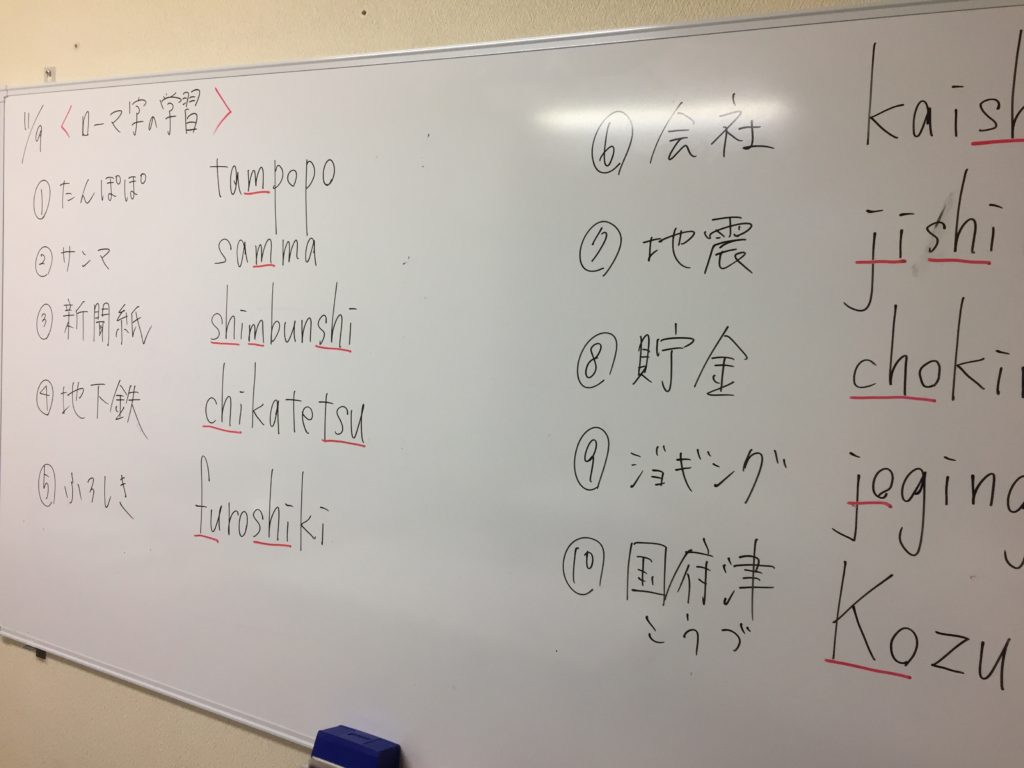 11/9 〈ローマ字の学習〉
① たんぽぽ tampopo
② サンマ samma
③ 新聞紙 shimbunshi
④ 地下鉄 chikatetsu
⑤ ふろしき furoshiki
⑥ 会社 kaish
⑦ 地震 jishi
⑧ 貯金 chokin
⑨ ジョギング joging
⑩ 国府津 Kozu
こうづ